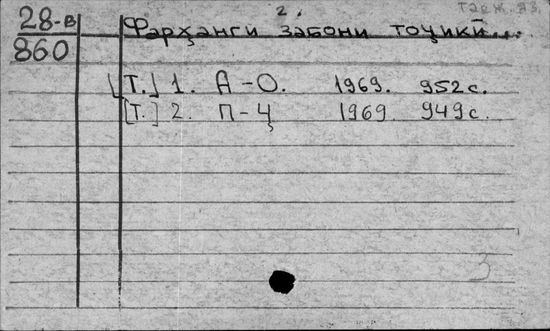 2. Тадж. яз.
28-в
860
Фарҳанги забони тоҷикӣ...
[Т.] 1. А-О. 1969. 952с.
[Т.] 2. П-Ҷ 1969 949с.
3